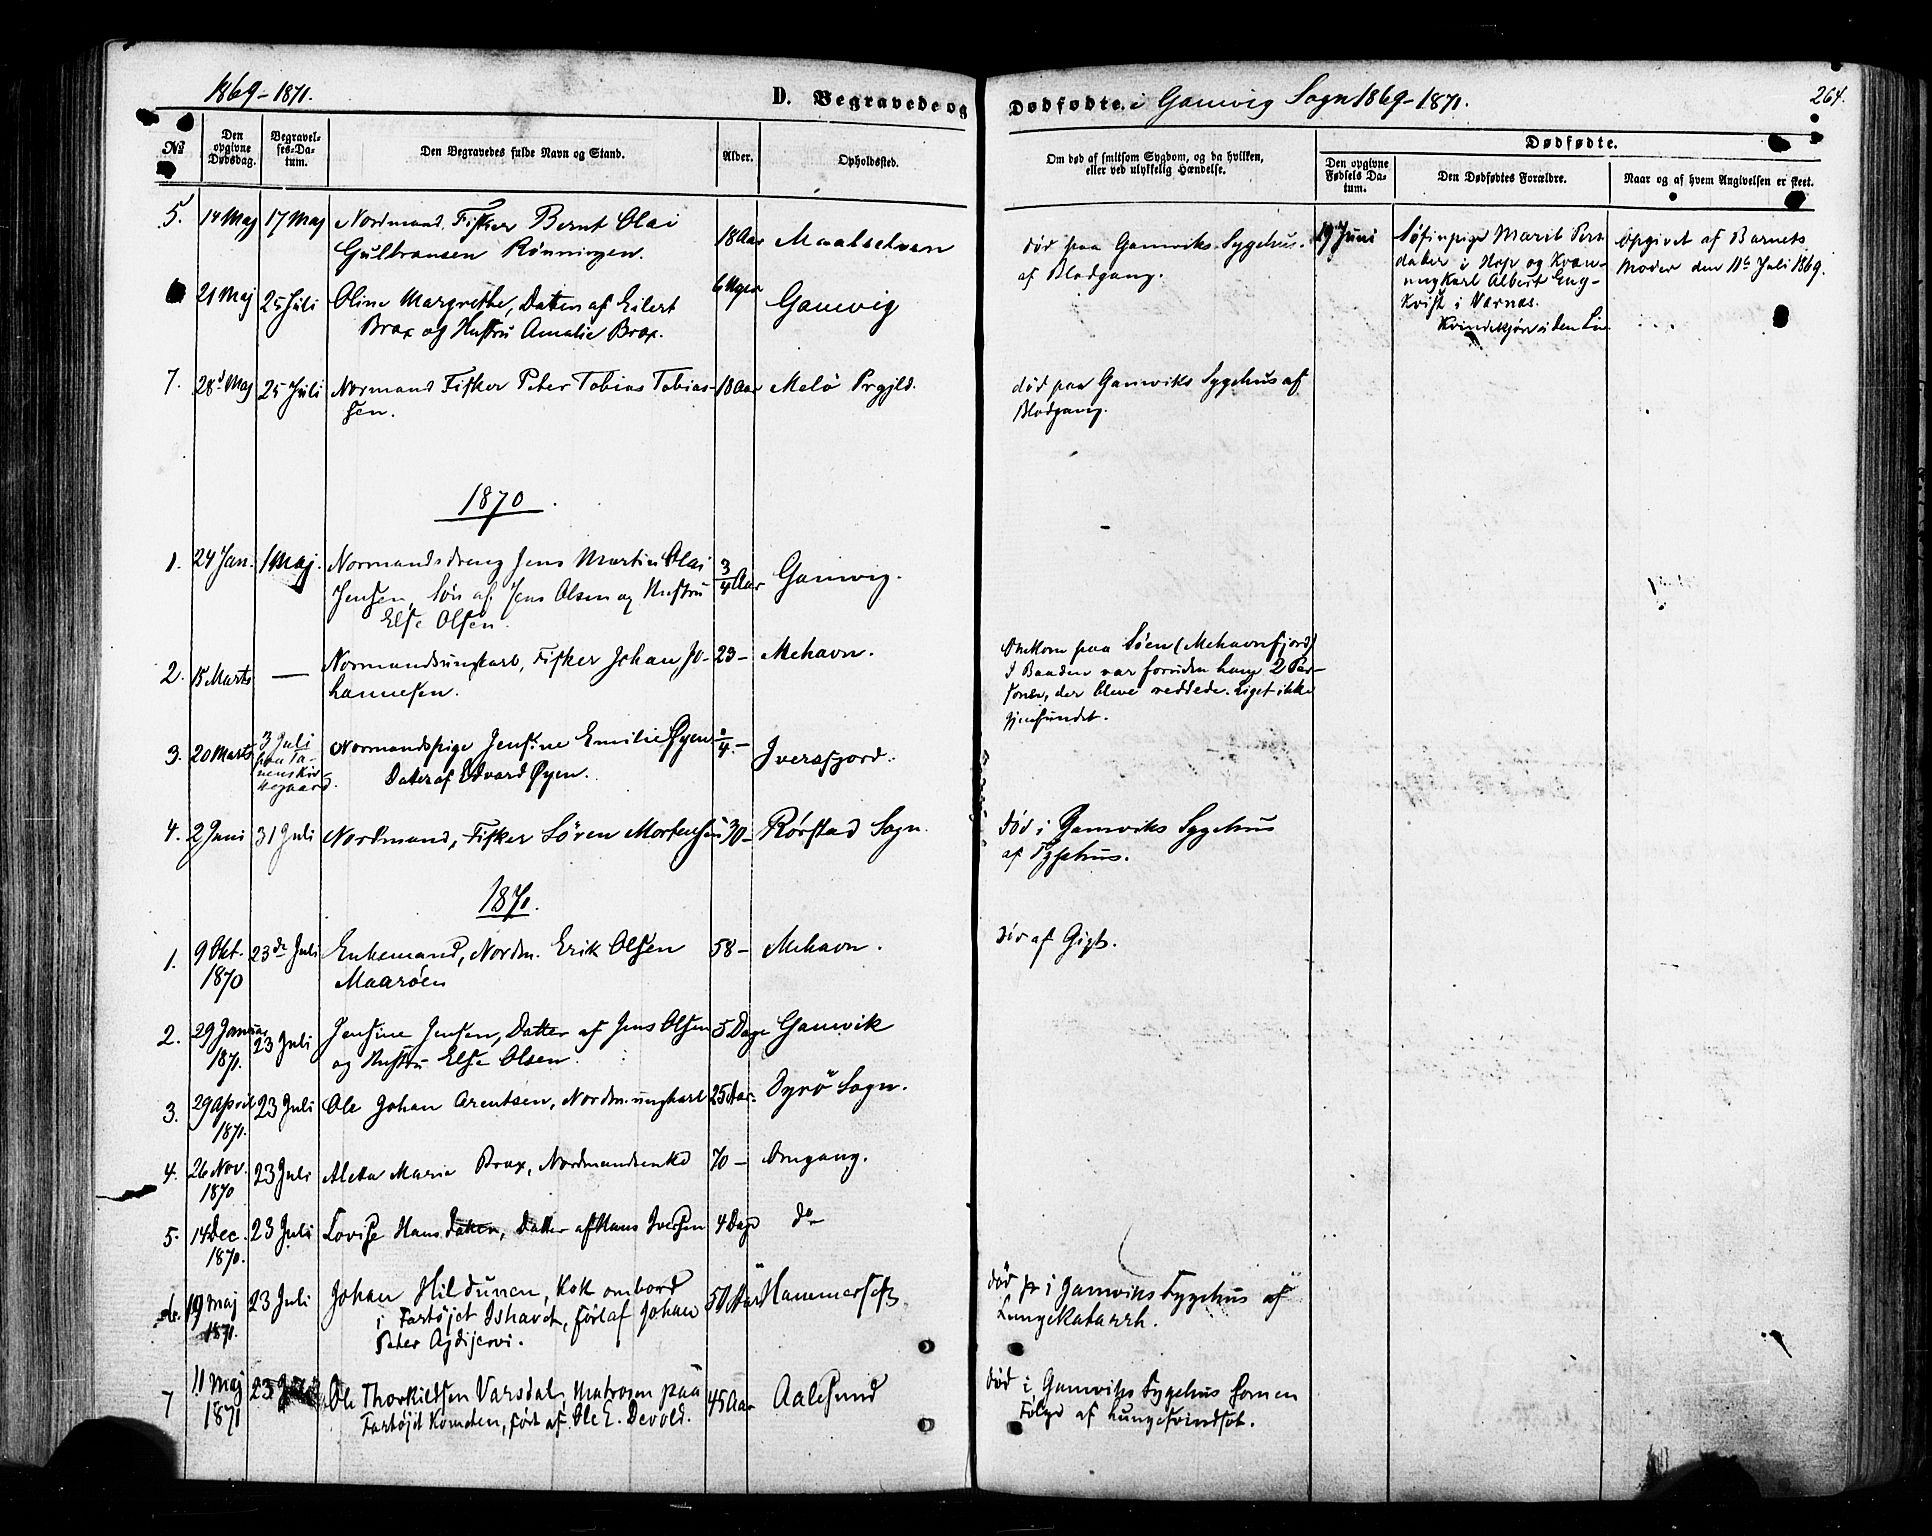 1869-1871.
D. Begravede og
Dødfødte. i Gamvig Sogn 1869-1871.
264.
No
Den opgivne Dødsdag.
Begravelses-Datum.
Den Begravedes fulde Navn og Stand.
Alder.
Opholdssted.
Om død af smitsom Sygdom, og da hvilken,
eller ved ulykkelig Hændelse.
Dødfødte.
Den opgivne Fødsels Datum.
Den Dødfødtes Forældre.
Naar og af hvem Angivelsen er skeet.
5. 14 Maj 17 Maj Nordmand. Fisker Bernt Olai
Gulbransen Rønningen. 18 Aar Maalselven
død paa Gamviks Sygehus.
af Blodgang.
19 Juni
Marit
i Hop og Kvæn-
ungkarl Albert Eng-
kvist i Værnæs.
Opgivet af Barnets
Moder den 11te Juli 1869.
21 Maj 25 Juli Oline Margrethe, Datter af Eilert
Brox og Hustru Amalie Brox. 6 Uger Gamvig
7. 28d Maj 25 Juli Normand Fisker Peter Tobias Tobias-
sen. 18 Aar Melø Prgjld.
død paa Gamviks Sygehus af
Blodgang.
1870.
1. 24 Jan. 1 Maj. Normandsdreng Jens Martin Olai
Jensen, Søn af Jens Olsen og Hustru
Else Olsen. 3/4 Aar Gamvig.
2. 15 Marts — Normandsungkarl, Fisker Johan Jo-
hannesen. 23 - Mehavn.
Omkom paa Søen (Mehavnfjord)
I Baaden var foruden ham 2 Per-
soner, der bleve reddede. Liget ikke
gjenfundet.
3. 20 Marts 3 Juli
paa Ta-
nens Kir-
kegaard.
Normandspige Jensine Emilie Øyen
Datter af Edvard Øyen. Iversfjord.
4. 2 Juni 31 Juli Nordmand, Fisker Søren Mortensen 30 - Rørstad Sogn.
død i Gamviks Sygehus
af Typhus.
1871.
1. 9 Okt. 1870 23de Juli Enkemand, Nordm. Erik Olsen
Maarøen 58 - Mehavn.
død af Gigt.
2. 29 Januar 1871. 23 Juli Jensine Jensen, Datter af Jens Olsen
og Hustru Else Olsen. 5 Dage Gamvik
3. 29 April 1871. 23 Juli Ole Johan Arentsen, Nordm. ungkarl 25 Aar. Dyrø Sogn.
4. 26 Nov. 1870 23 Juli Aleta Maria Brox, Nordmandsenke 70 - Omgang.
5. 14 Dec. 1870. 23 Juli Lovise Hans Datter, Datter af Hans Iversen 4 Dage do
6. 19 Maj 1871. 23 Juli Johan Hildunen, Kok ombord
i Fartøjet Ishavet, ført af Johan
Peter Ajdijervi. Hammerfest
død i Gamviks Sygehus af
Lungekatarrh.
7 11 Maj 1871 23 Juli Ole Thorkildsen Varsdal, Matrosen paa
Fartøjet Kometen, ført af Ole E. Devold. 45 Aar Aalesund
død i Gamviks Sygehus som en
Følge af Lungesvindsot.